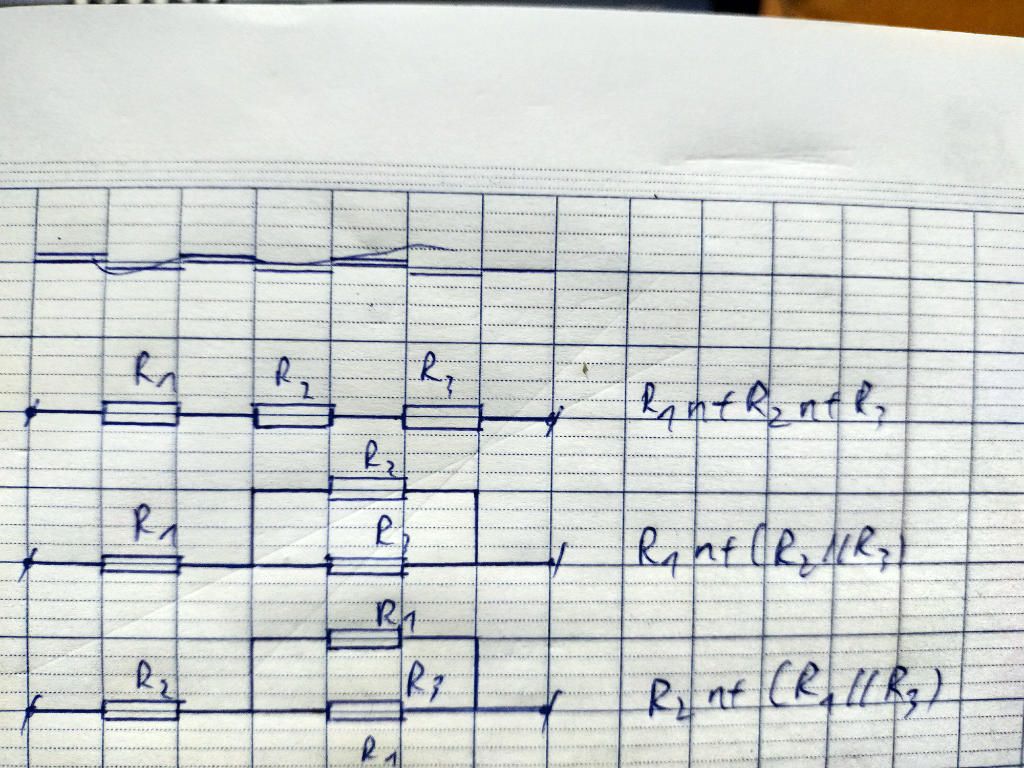 R1 R2 R3 R1 nt R2 nt R3
R2
R1 R3 R1 nt (R2 // R3)
R1
R2 R3 R2 nt (R1 // R3)
R1